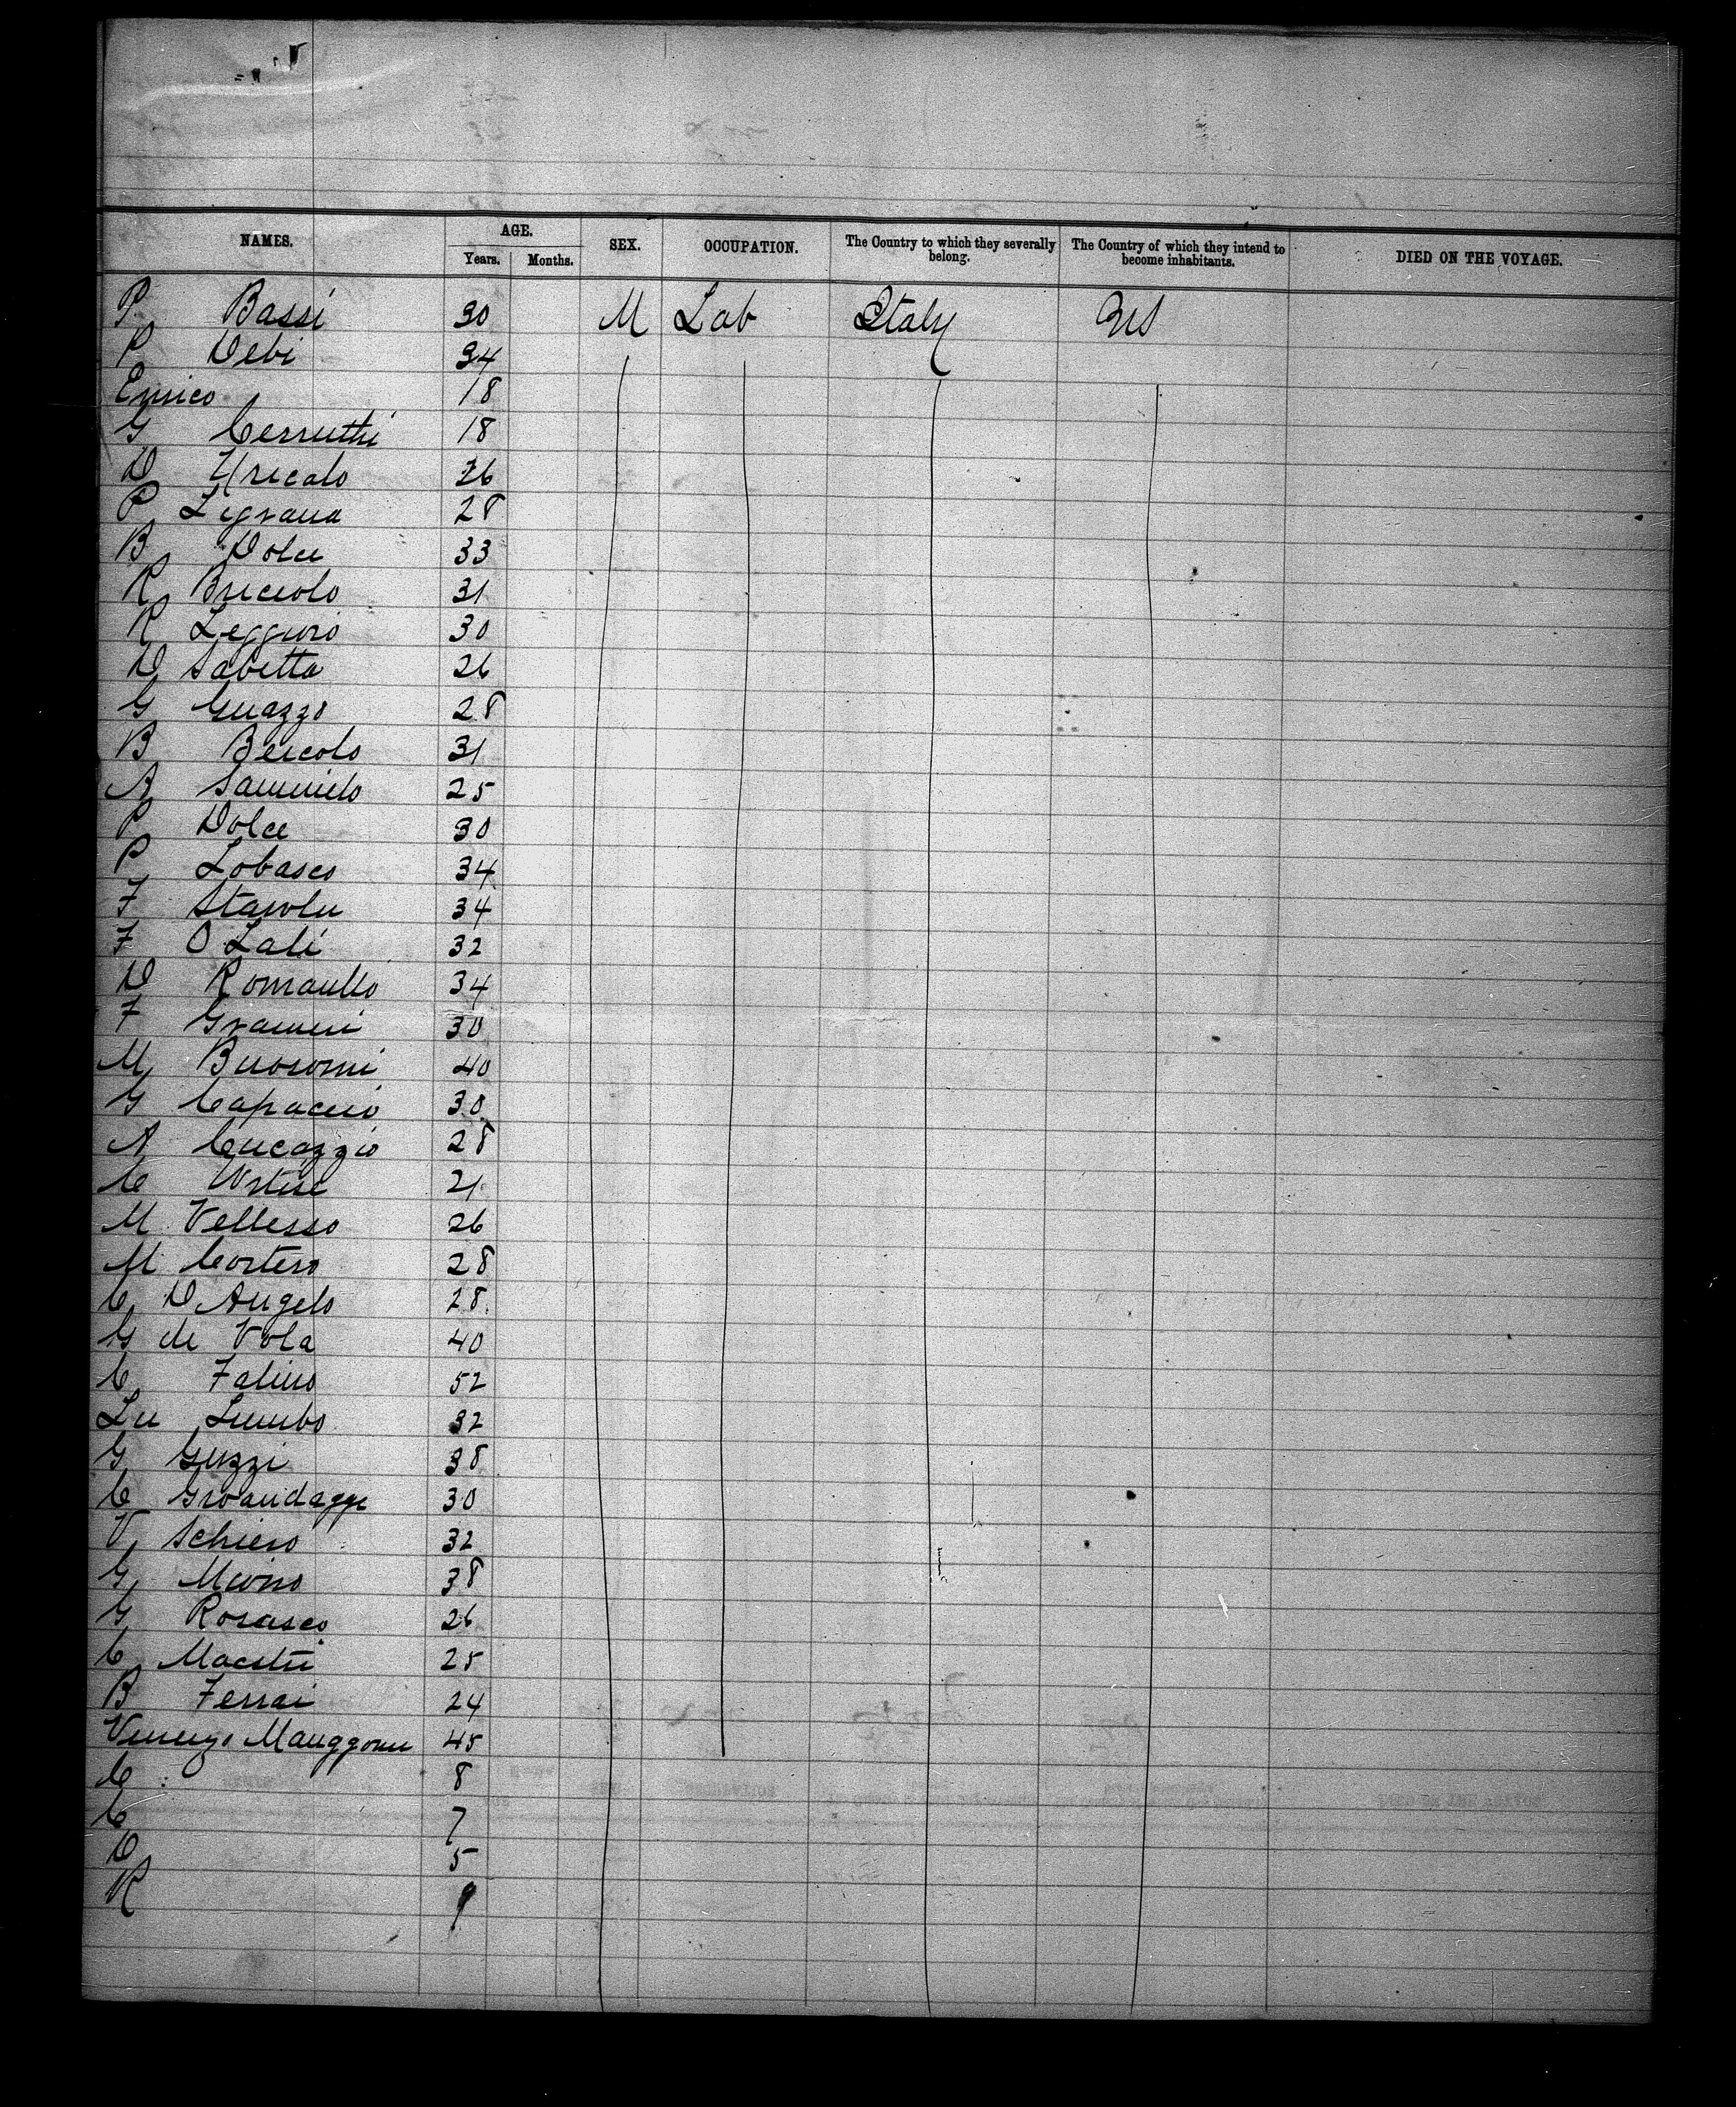 NAMES. AGE. SEX. OCCUPATION. The Country to which they severally belong. The Country of which they intend to become inhabitants. DIED ON THE VOYAGE.
Years. Months.
P Bassi 30 M Lab Italy US
P Debi 34
Enrico 18
G Cerruthi 18
D 26
P Legrana 28
B Dolce 33
R Bricciolo 31
R Leggiero 30
D Sabetta 26
G Guazzo 28
B Bercolo 31
A 25
P Dolce 30
P Lobasco 34
F 34
F O Lali 32
D Romaullo 34
F 30
M 40
G Capaccio 30
A Cucozzio 28
C 21
M Vellesso 26
M Cortero 28
C D Angelo 28
G de Vola 40
C Falino 52
Lu Lumbo 32
G Guzzi 38
C 30
V Schiero 32
G 38
G Rosasco 26
C Maestri 25
B Ferrai 24
45
C 8
C 7
D 5
R 9